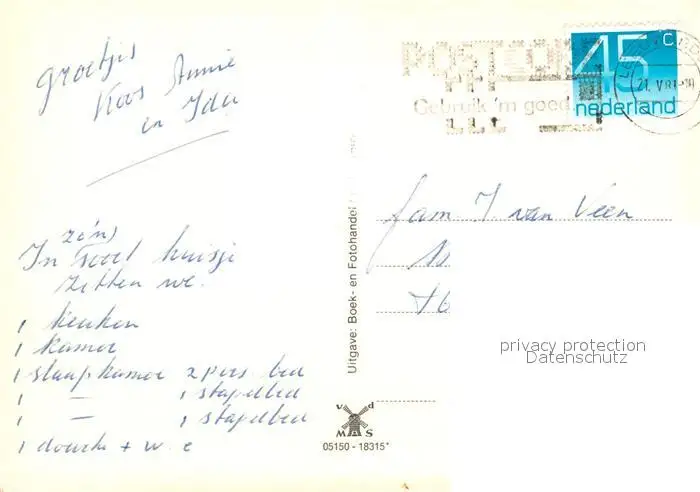 groetjes
Koos Annie
en Ida
zo'n)
In soort huisje
zitten we.
1 keuken
1 kamer
1 slaapkamer 2 pers. bed
1 — 1 stapelbed
1 — 1 stapelbed
1 douche + w.c
Uitgave: Boek- en Fotohandel
v d
MAS
05150 - 18315*
POSTCODE
PTT
Gebruik 'm goed
45 c
nederland
21. V.81
fam J van Veen
privacy protection
Datenschutz